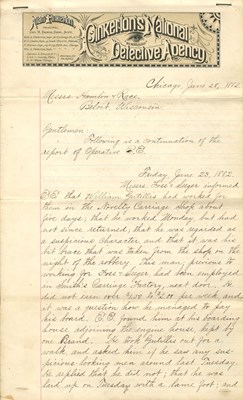 Pinkerton's National
Detective Agency.
Chicago, June 28, 1882.
Messrs
Beloit, Wisconsin
Gentlemen
Following is a continuation of the
report of Operative
Friday June 23, 1882.
Messrs Foss & Sager informed
that William Gutillis had worked for
them in the Novelty Carriage Shop about
five days; that he worked Monday but had
not since returned; that he was regarded as
a suspicious character and that it was his
bit brace that was taken from the shop on the
night of the robbery. This man, previous to
working for Foss & Sager, had been employed
in Smith's Carriage Factory, next door. He
did not earn over $4.00 to $5.00 per week, and
it was a question how he managed to pay
his board. found him at his boarding
house adjoining the engine house, kept by
one Brand. He took Gutillis out for a
walk and asked him if he saw any sus-
picious looking men around last Tuesday.
He replied that he did not; that he was
laid up on Tuesday with a lame foot; and